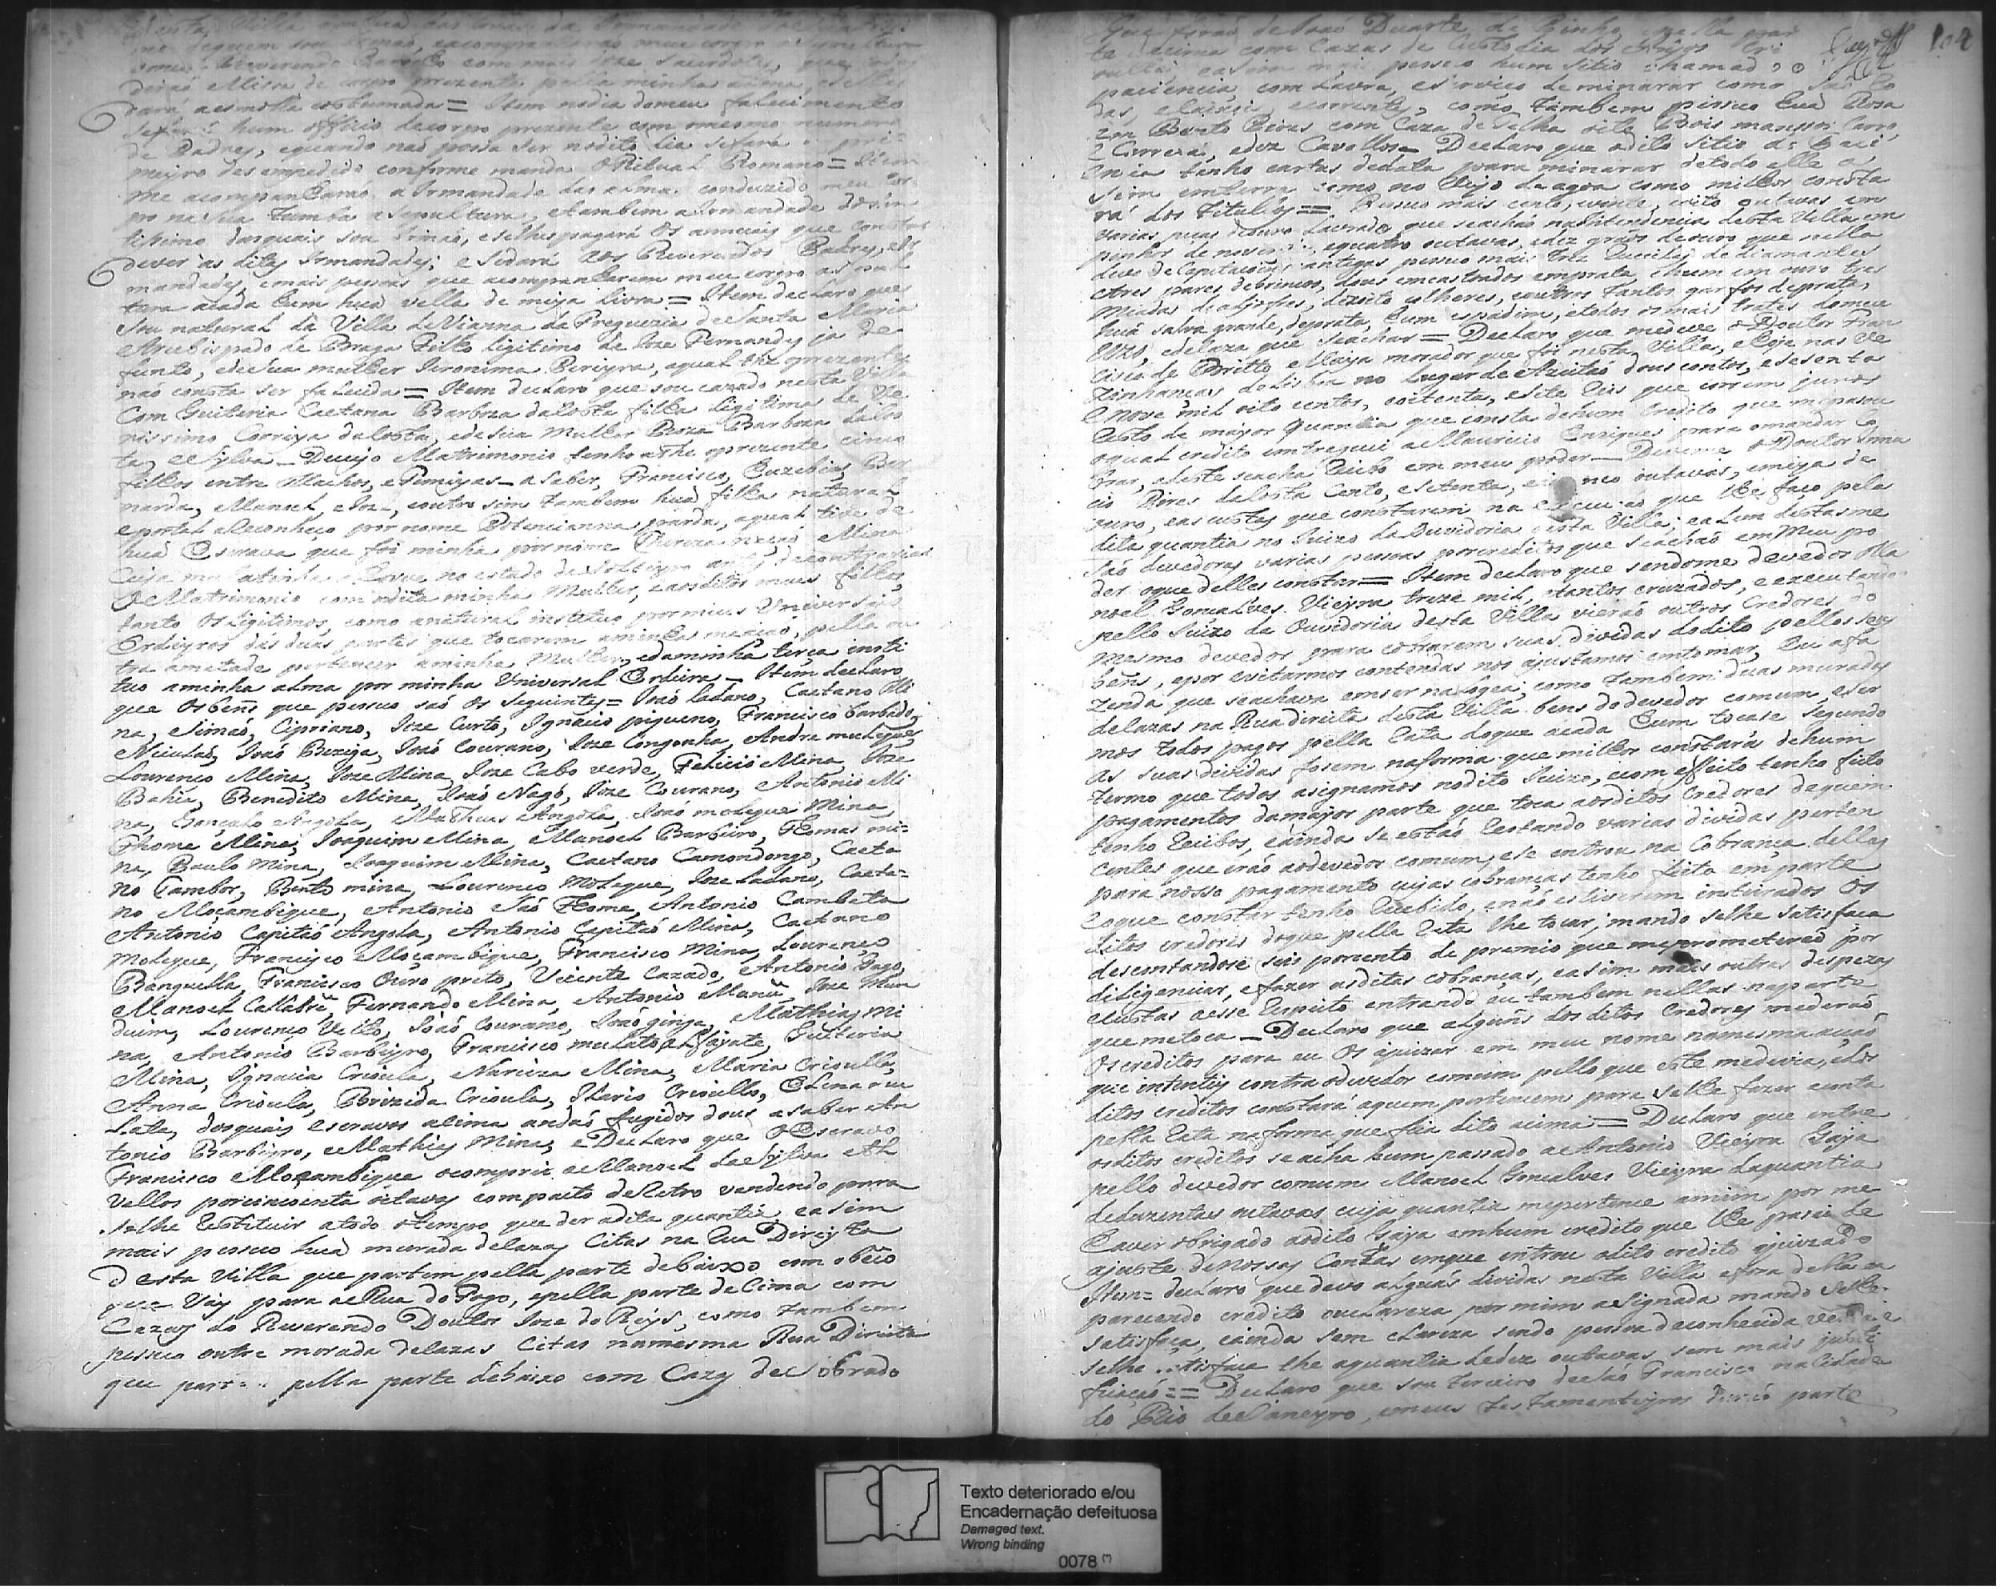 desta Villa
me deguem sou Irmaó, acompanharáo meu corpo
o meu Reverendo Parocho com mais doze Sacerdotes, que todos
diraó Missa de corpo prezente pella minha alma, e se lhe
dará a esmolla costumada = Item no dia do meu falecimento
se fará hum officio de corpo prezente com o mesmo numero
de Padres, e quando naó possa ser no dito dia se fará no pri-
meyro desempedido conforme manda o Ritual Romano = Item
me acompanhará a Irmandade das almas conduzido meu cor-
po na sua tumba a sepultura, e tambem a Irmandade do San
tissimo das quais sou Irmaó, e se lhes pagará os annuais que constar
dever as ditas Irmandades; e se dará aos Reverendos Padres, e Ir
mandades, e mais pessoas que acompanharem meu corpo a sepul
tura a cada hum huá vella de meya livra = Item declaro que
sou natural da Villa de Vianna da Freguezia de Santa Maria
Arcebispado de Braga filho legitimo de Joze Fernandes ja de
funto, e de sua mulher Jeronima Pereyra, a qual the o prezente
naó consta ser falecida = Item declaro que sou cazado nesta Villa
Com Quiteria Caetana Barboza da Costa filha legitima de Ve
rissimo Correya da Costa, e de sua mulher Roza Barboza da Cos
ta, e Sylva _ De cujo Matrimonio tenho athe o prezente cinco
filhos entre Machos, e Femeyas _ a Saber, Francisco, Euzebia, Ber
narda, Manoel, e Joze, e outro sim tambem huá filha natural
e por tal a reconheço por nome Potencianna parda, a qual tive de
huá Escrava que foi minha por nome Thereza naçaó Mina
Cuja mulatinha a houve no estado de solteyro antes de contrahir
o Matrimonio com a dita minha Mulher, e aos ditos meus filhos
tanto os Legitimos, como a natural instituo por meus Universais
Erdeyros das duas partes que tocarem a minha meaçaó, pella ou
tra ametade pertencer a minha Mulher, e da minha terça insti
tuo a minha alma por minha Universal Erdeira _ Item declaro
que os bens que pessuo saó os seguintes = Joaó ladano, Caetano Mi
na, Simaó, Cipriano, Joze Curto, Ignacio piqueno, Francisco barbado,
Niculaó, Joaó Buziga, Joaó Courano, Joze Congonha, Andre muleque,
Lourenço Mina, Joze Mina, Joze Cabo verde, Felicio Mina, Joze
Bahia, Benedito Mina, Joaó Nagó, Joze Courano, Antonio Mi
na, Gonçalo Angola, Matheus Angola, Joaó moleque Mina,
Thome Mina, Joaquim Mina, Manoel Barbeiro, Thomas mi=
na, Paulo Mina, Joaquim Mina, Caetano Camondongo, Caeta
no Tambor, Bento mina, Lourenço Moleque, Joze Ladano, Caeta=
no Moçambique, Antonio Saó Thome, Antonio Cambeta
Antonio Capitaó Angola, Antonio Capitaó Mina, Caetano
moleque, Francisco Moçambique, Francisco Mina, Lourenço
Banguella, Francisco Ouro preto, Vicente Cazado, Antonio Gago,
Manoel Callabre, Fernando Mina, Antonio Manú, Joze Mun
dum, Lourenço Velho, Joaó Courano, Joaó ginja, Mathias mi
na, Antonio Barbeyro, Francisco mulato Alfayate, Quiteria
Mina, Ignacia Crioula, Narciza Mina, Maria Crioulla,
Anna Crioula, Brizida Crioula, Ilario Crioullo, Elena mu
lata, dos quais escravos asima andaó fugidos dous a saber An
tonio Barbeyro, e Mathias Mina, e Declaro que o Escravo
Francisco Mozambique o comprei a Manoel da Sylva Al
vellos por cincoenta oitavas com pacto de Retro vendendo para
se lhe restituir a todo o tempo que der a dita quantia, e a sim
mais pessuo huá morada de Cazas Citas na Rua Direyta
desta Villa que partem pella parte de baixo com o beco
que vay para a Rua do Fogo, e pella parte de Cima com
Cazas do Reverendo Doutor Joze do Reys, como tambem
pessuo outra morada de Cazas Citas na mesma Rua Direita
que partem pella parte debaixo com Cazas de Sobrado
que foraó de Joaó Duarte de Pinho, e pella par
te de cima com Cazas de Custodia dos Anjos Cri
oulla, e a sim mais pessuo hum Sitio chamado o
paciencia com Lavra, e serviço de minarar como
104
das, e Crioiz, e corrente, como tambem pessuo huá Rosa
em Bento Pires com Caza de telha oito Bois mansos, Carro,
e Correiá, e dez Cavallos _ Declaro que o dito Sitio da Paci
encia tenho cartas de data para minarar de todo elle a
sim em terra como no Veyo da agoa como milhor consta
rá dos Titullos = Possuo mais cento, e vinte, e oito outavas em
varias peças de ouro lavrado que se achaó na Intendencia desta Villa em
penhor de nove e quatro outavas, e dez graós de ouro que nella
devo de Capitaçoens antigas pessuo mais tres Anneis de diamantes
e tres pares de brincos, dous encastoados em prata, e hum em ouro tres
meadas de aljofres, dezoito colheres, e outros tantos garfos de prata,
huá salva grande, de prata, hum espadim, e todos os mais trastes do meu
uzo, e da Caza que se acharem = Declaro que me deve o Doutor Fran
cisco de Britto e Maya morador que foi nesta Villa, e hoje nas ve
zinhanças de Lisboa no Lugar de Azeitaó dous contos, e sesenta
e nove mil oito centos, e oitenta, e sete reis que correm juros
resto de mayor quantia que consta de hum Credito que me passou
o qual credito entreguei a Mauricio Enriques para o mandar Co
brar, e deste se acha recibo em meu poder _ Deveme o Doutor Igna
cio Pires da Costa Cento, e setenta, e cinco outavas, e meya de
ouro, e as custas que constarem na execuçaó que lhe faço pela
dita quantia no Juizo da Ouvidoria desta Villa; e alem destas me
saó devedoras varias pessoas por creditos que se achaó em Meu po
der o que delles constar = Item declaro que sendome devedor Ma
noel Gonçalves Vieyra treze mil, e tantos cruzados, e executando
pello Juizo da Ouvidoria desta Villa vieraó outros Credores do
mesmo devedor para cobrarem suas dividas do dito pellos seus
bens, e por evitarmos contendas nos ajustamos em tomar, eu a fa
zenda que se achava em ser na logea; como tambem duas moradas
de Cazas na Rua direita desta Villa bens do devedor comum, e ser
mos todos pagos pella rata do que a cada hum tocase segundo
as suas dividas forem na forma que milhor constará de hum
termo que todos asignamos no dito Juizo, e com effeito tenho feito
pagamentos da mayor parte que toca aos ditos Credores de quem
tenho recibos, e ainda se estaó restando varias dividas perten
centes que eraó ao devedor comum, e se entrou na Cobrança dellas
para nosso pagamento cujas cobranças tenho feito em parte
e o que constar tenho recebido, e naó estiverem inteirados os
ditos credores do que pella rata lhe tocar, mando se lhe satisfaça
descontandose seis por cento de premio que me prometeraó por
deligenciar, e fazer as ditas cobranças, e a sim mais outras despezas
e custas a esse respeito entrando eu tambem nellas na parte
que me toca _ Declaro que alguns dos ditos Credores me deraó
os creditos para eu os ajuizar em meu nome na mesma auçaó
que intentey contra o devedor comum pello que este me devia, e dos
ditos creditos constará a quem pertencem para se lhe fazer a conta
pella rata na forma que fica dito acima = Declaro que entre
os ditos creditos se acha hum passado a Antonio Vieyra Gaja
pello devedor comum Manoel Gonçalves Vieyra da quantia
de duzentas outavas cuja quantia me pertence a mim por me
haver obrigado ao dito Gaja em hum credito que lhe passei de
ajuste de nossas Contas em que entrou o dito credito ajuizado
Item = declaro que devo alguás dividas nesta Villa e fora della a
parecendo credito ou clareza por mim asignada mando se lhe
satisfaça, e ainda sem clareza sendo pessoa de conhecida verdade
se lhe satisfaça the a quantia de dez outavas sem mais justi
ficaçaó == Declaro que sou Terceiro de Saó Francisco na Cidade
do Rio de Janeyro, e meus testamenteyros daraó parte
Texto deteriorado e/ou
Encadernação defeituosa
Damaged text.
Wrong binding
0078 (*)